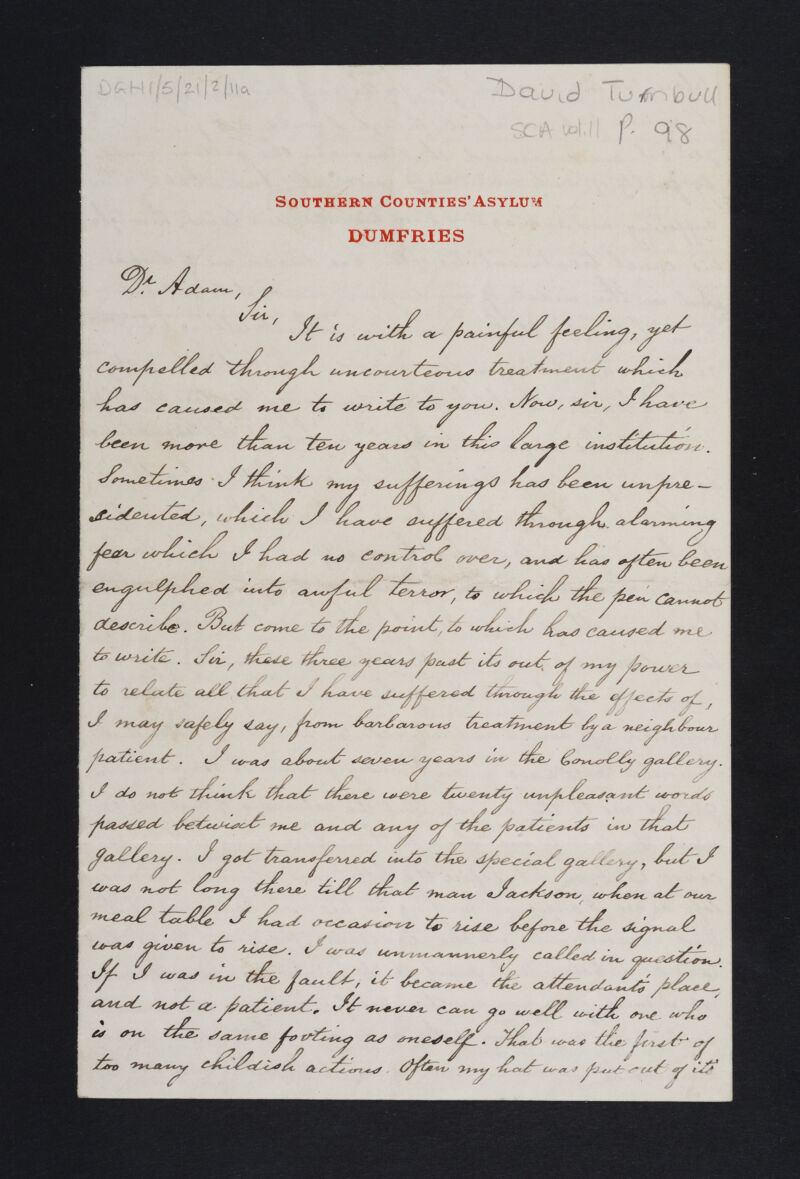 DGH1/5/21/2/11a
David Turnbull
SCA Vol.11 P. 98
SOUTHERN COUNTIES' ASYLUM
DUMFRIES
Dr. Adam,
Sir,
It is with a painful feeling, yet
compelled through uncourteous treatment which
has caused me to write to you. Now, sir, I have
been more than ten years in this large institution.
Sometimes I think my sufferings has been unpre-
sidented, which I have suffered through alarming
fear which I had no control over, and has often been
engulphed into awful terror, to which the pen cannot
describe. But come to the point, to which has caused me
to write. Sir, these three years past its out of my power
to relate all that I have suffered through the effects of,
I may safely say, from barbarous treatment by a neighbour
patient. I was about seven years in the Conolly gallery.
I do not think that there were twenty unpleasant words
passed betwixt me and any of the patients in that
gallery. I got transferred into the special gallery, but I
was not long there till that man Jackson, when at our
meal table I had occasion to rise before the signal
was given to rise. I was unmannerly called in question.
If I was in the fault, it became the attendant's place,
and not a patient. It never can go well with one who
is on the same footing as oneself. That was the first of
too many childish actions. Often my hat was put out of its